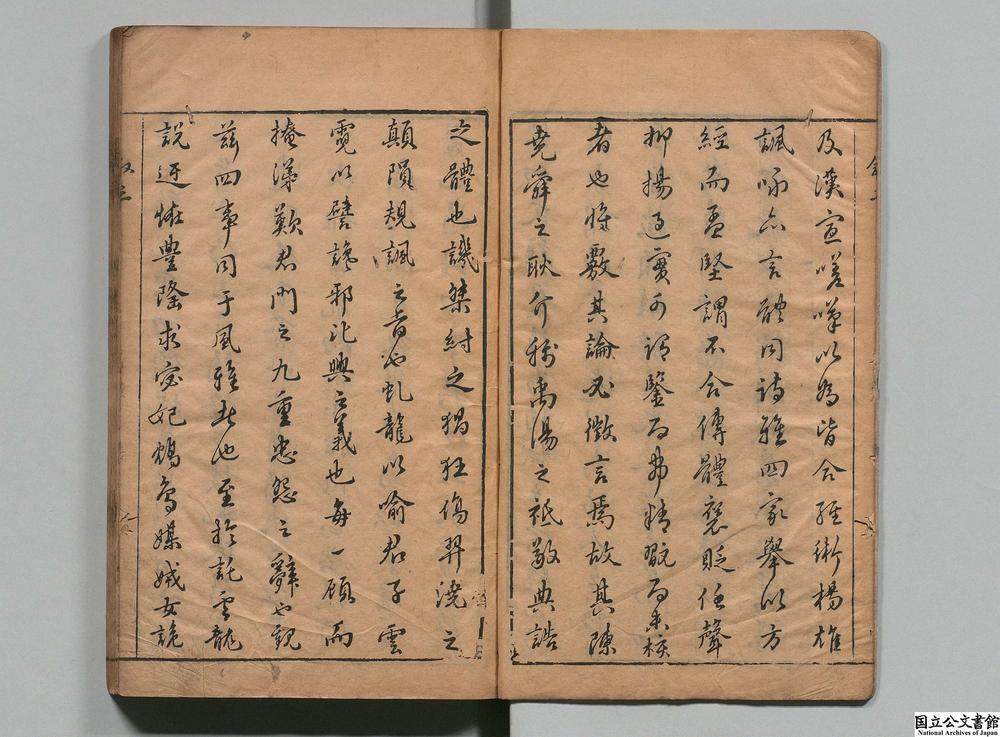 及漢宣嗟嘆以為皆合經術楊雄
諷味亦言體同詩雅四家舉以方
經而孟堅謂不合傳體褒貶任聲
抑揚過實可謂鑒而弗精翫而未核
者也將覈其論必徵言焉故其陳
堯舜之耿介稱禹湯之祗敬典誥
之體也譏桀紂之猖狂傷羿澆之
顛隕規諷之旨也虬龍以喻君子雲
霓以譬讒邪比興之義也每一顧而
掩涕歎君門之九重忠怨之辭也觀
茲四事同于風雅者也至於託雲龍
說迂怪豐隆求宓妃鴆鳥媒娀女詭
国立公文書館
National Archives of Japan